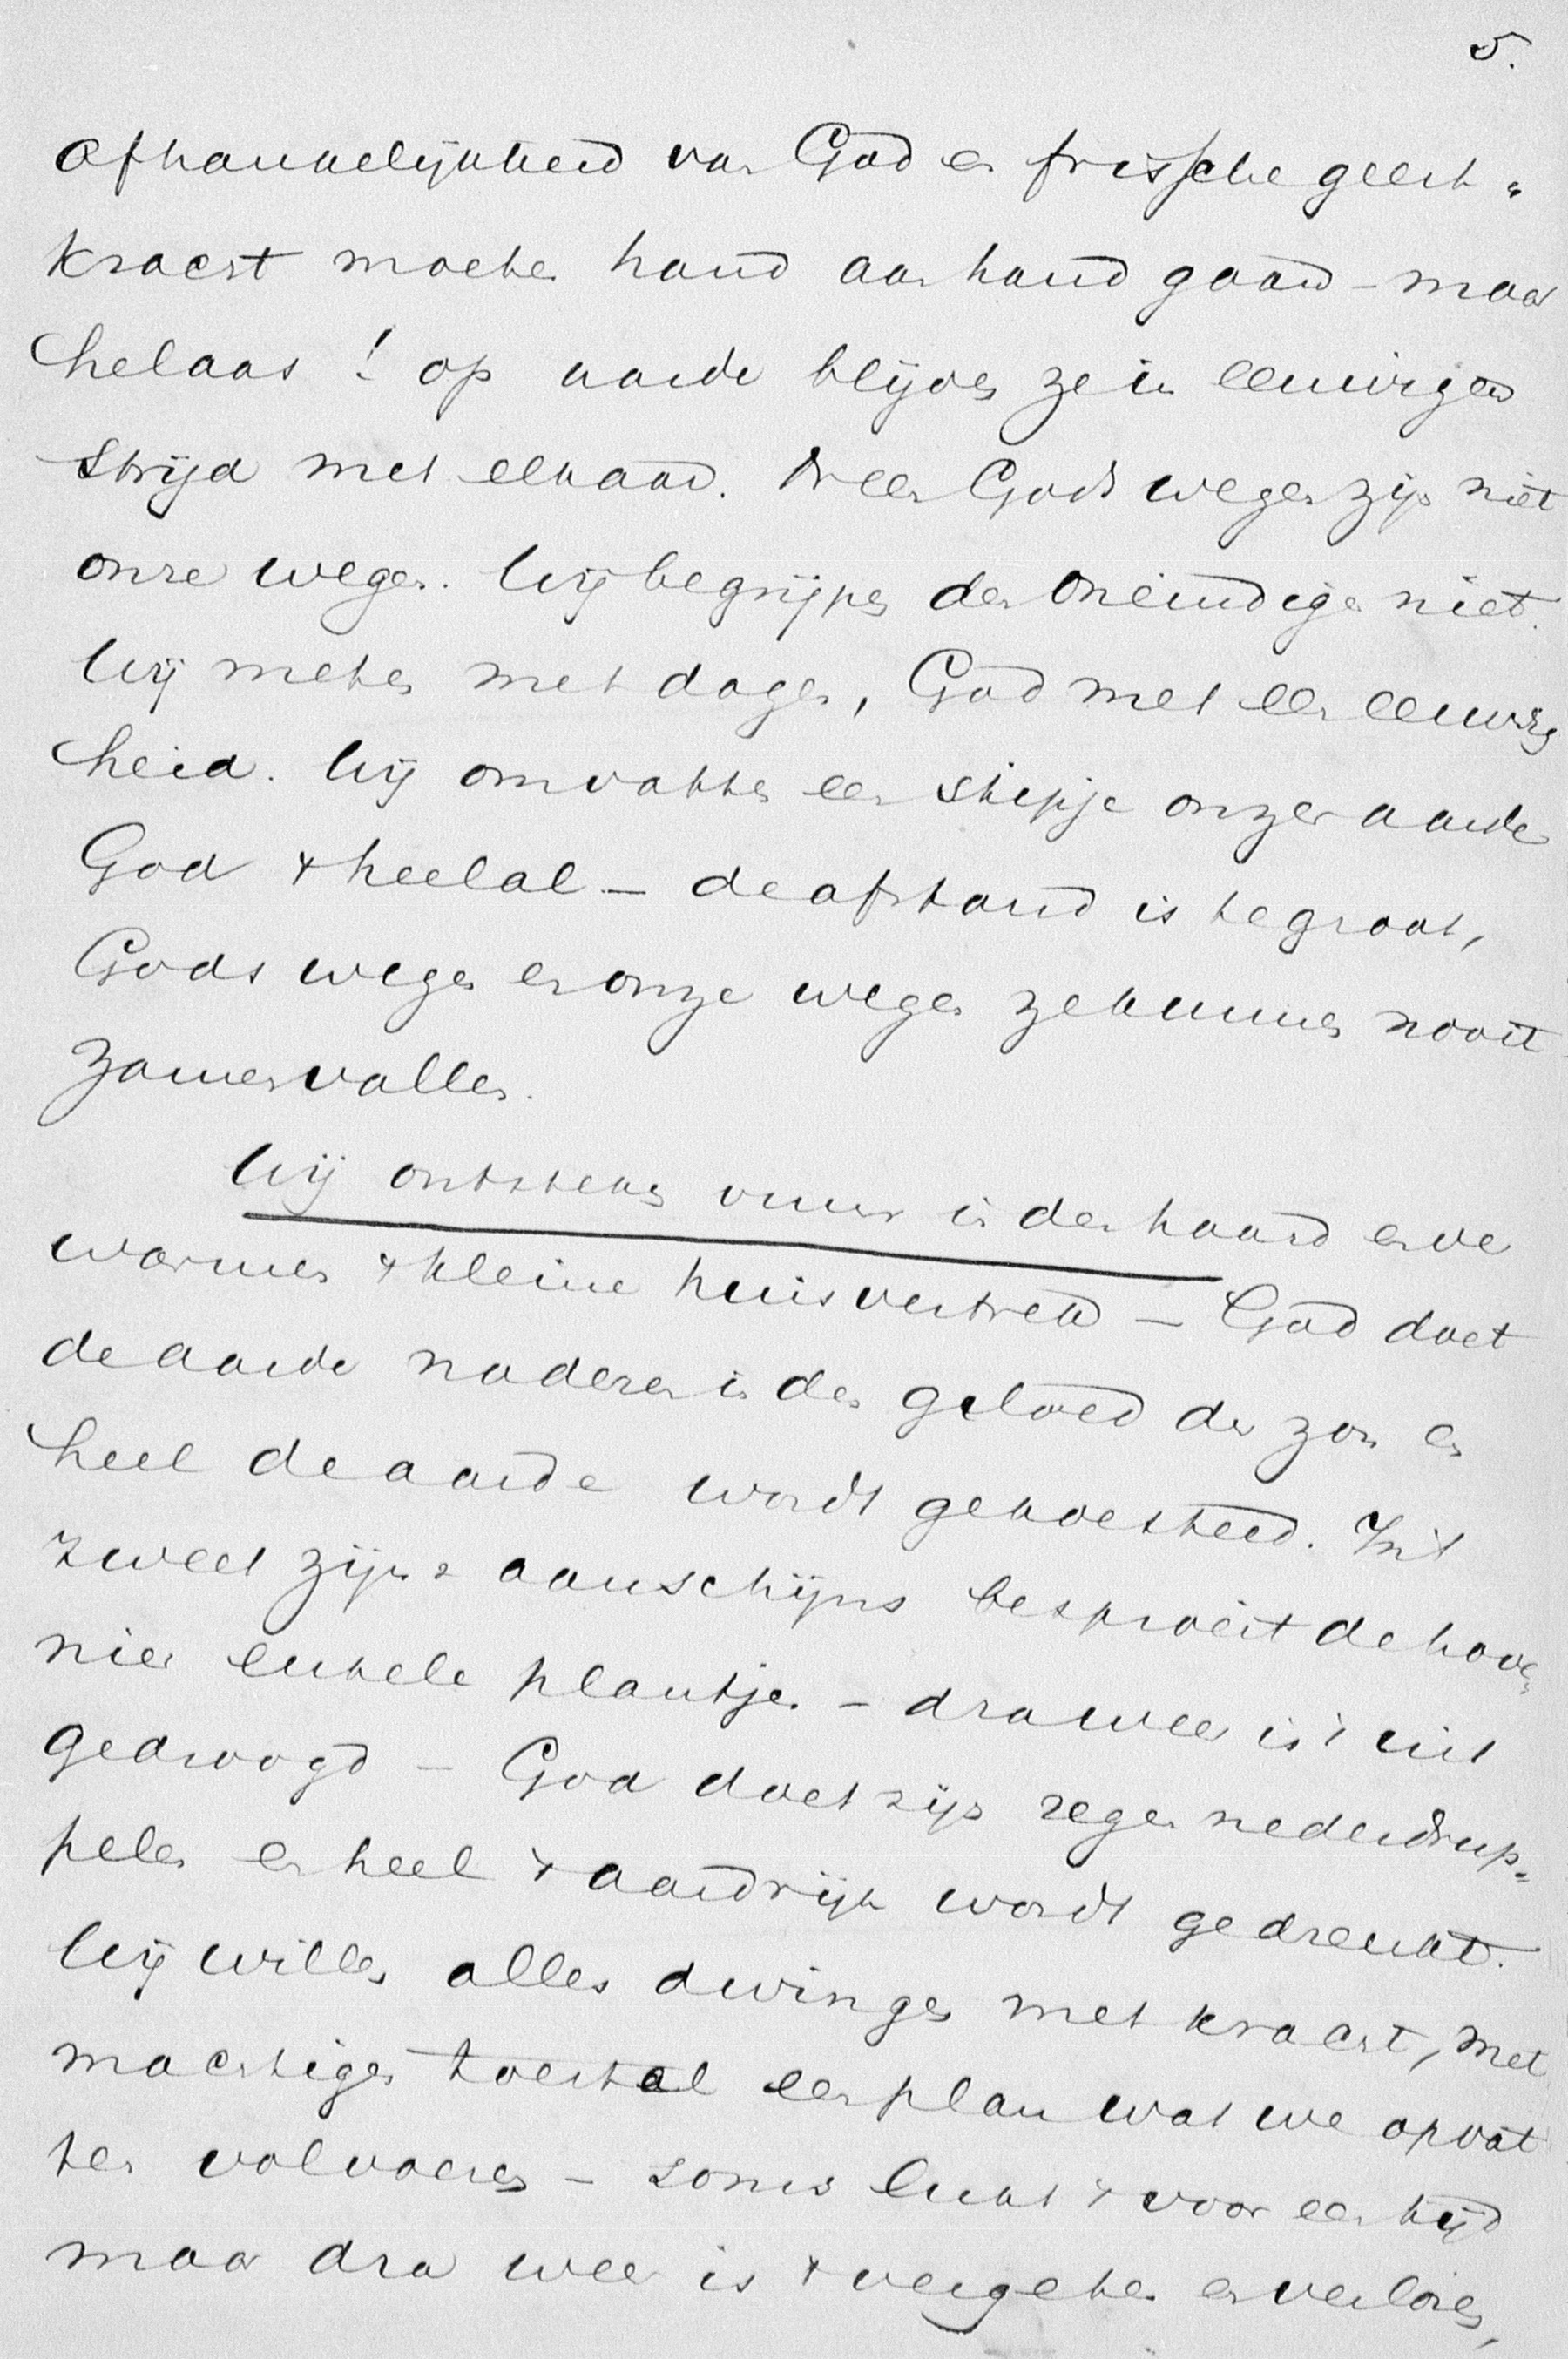 5.
Afhankelijkheid van God en frissche geest-
kracht moeten hand aan hand gaan – maar
helaas! op aarde blijven ze in eeuwigen
strijd met elkaar. Neen Gods wegen zijn niet
onze wegen. Wij begrijpen den Oneindige niet.
Wij meten met dagen, God met een eeuwig
heid. Wij omvatten een stipje onzer aarde
God 't heelal – de afstand is te groot,
Gods wegen en onze wegen ze kunnen nooit
zamenvallen.
Wij ontsteken vuur in den haard en we
warmen 't kleine huisvertrek – God doet
de aarde naderen in den gloed der zon en
heel de aarde wordt gekoesterd. In 't
zweet zijns aanschijns besproeit de hove-
nier enkele plantjes – dra weer is 't uit
gedroogd – God doet zijn regen nederdrup-
pelen en heel 't aardrijk wordt gedrenkt.
Wij willen alles dwingen met kracht, met
machtigen toestel een plan wat we opvat
ten volvoeren – soms lukt 't voor een tijd
maar dra weer is 't vergeten en verloren,